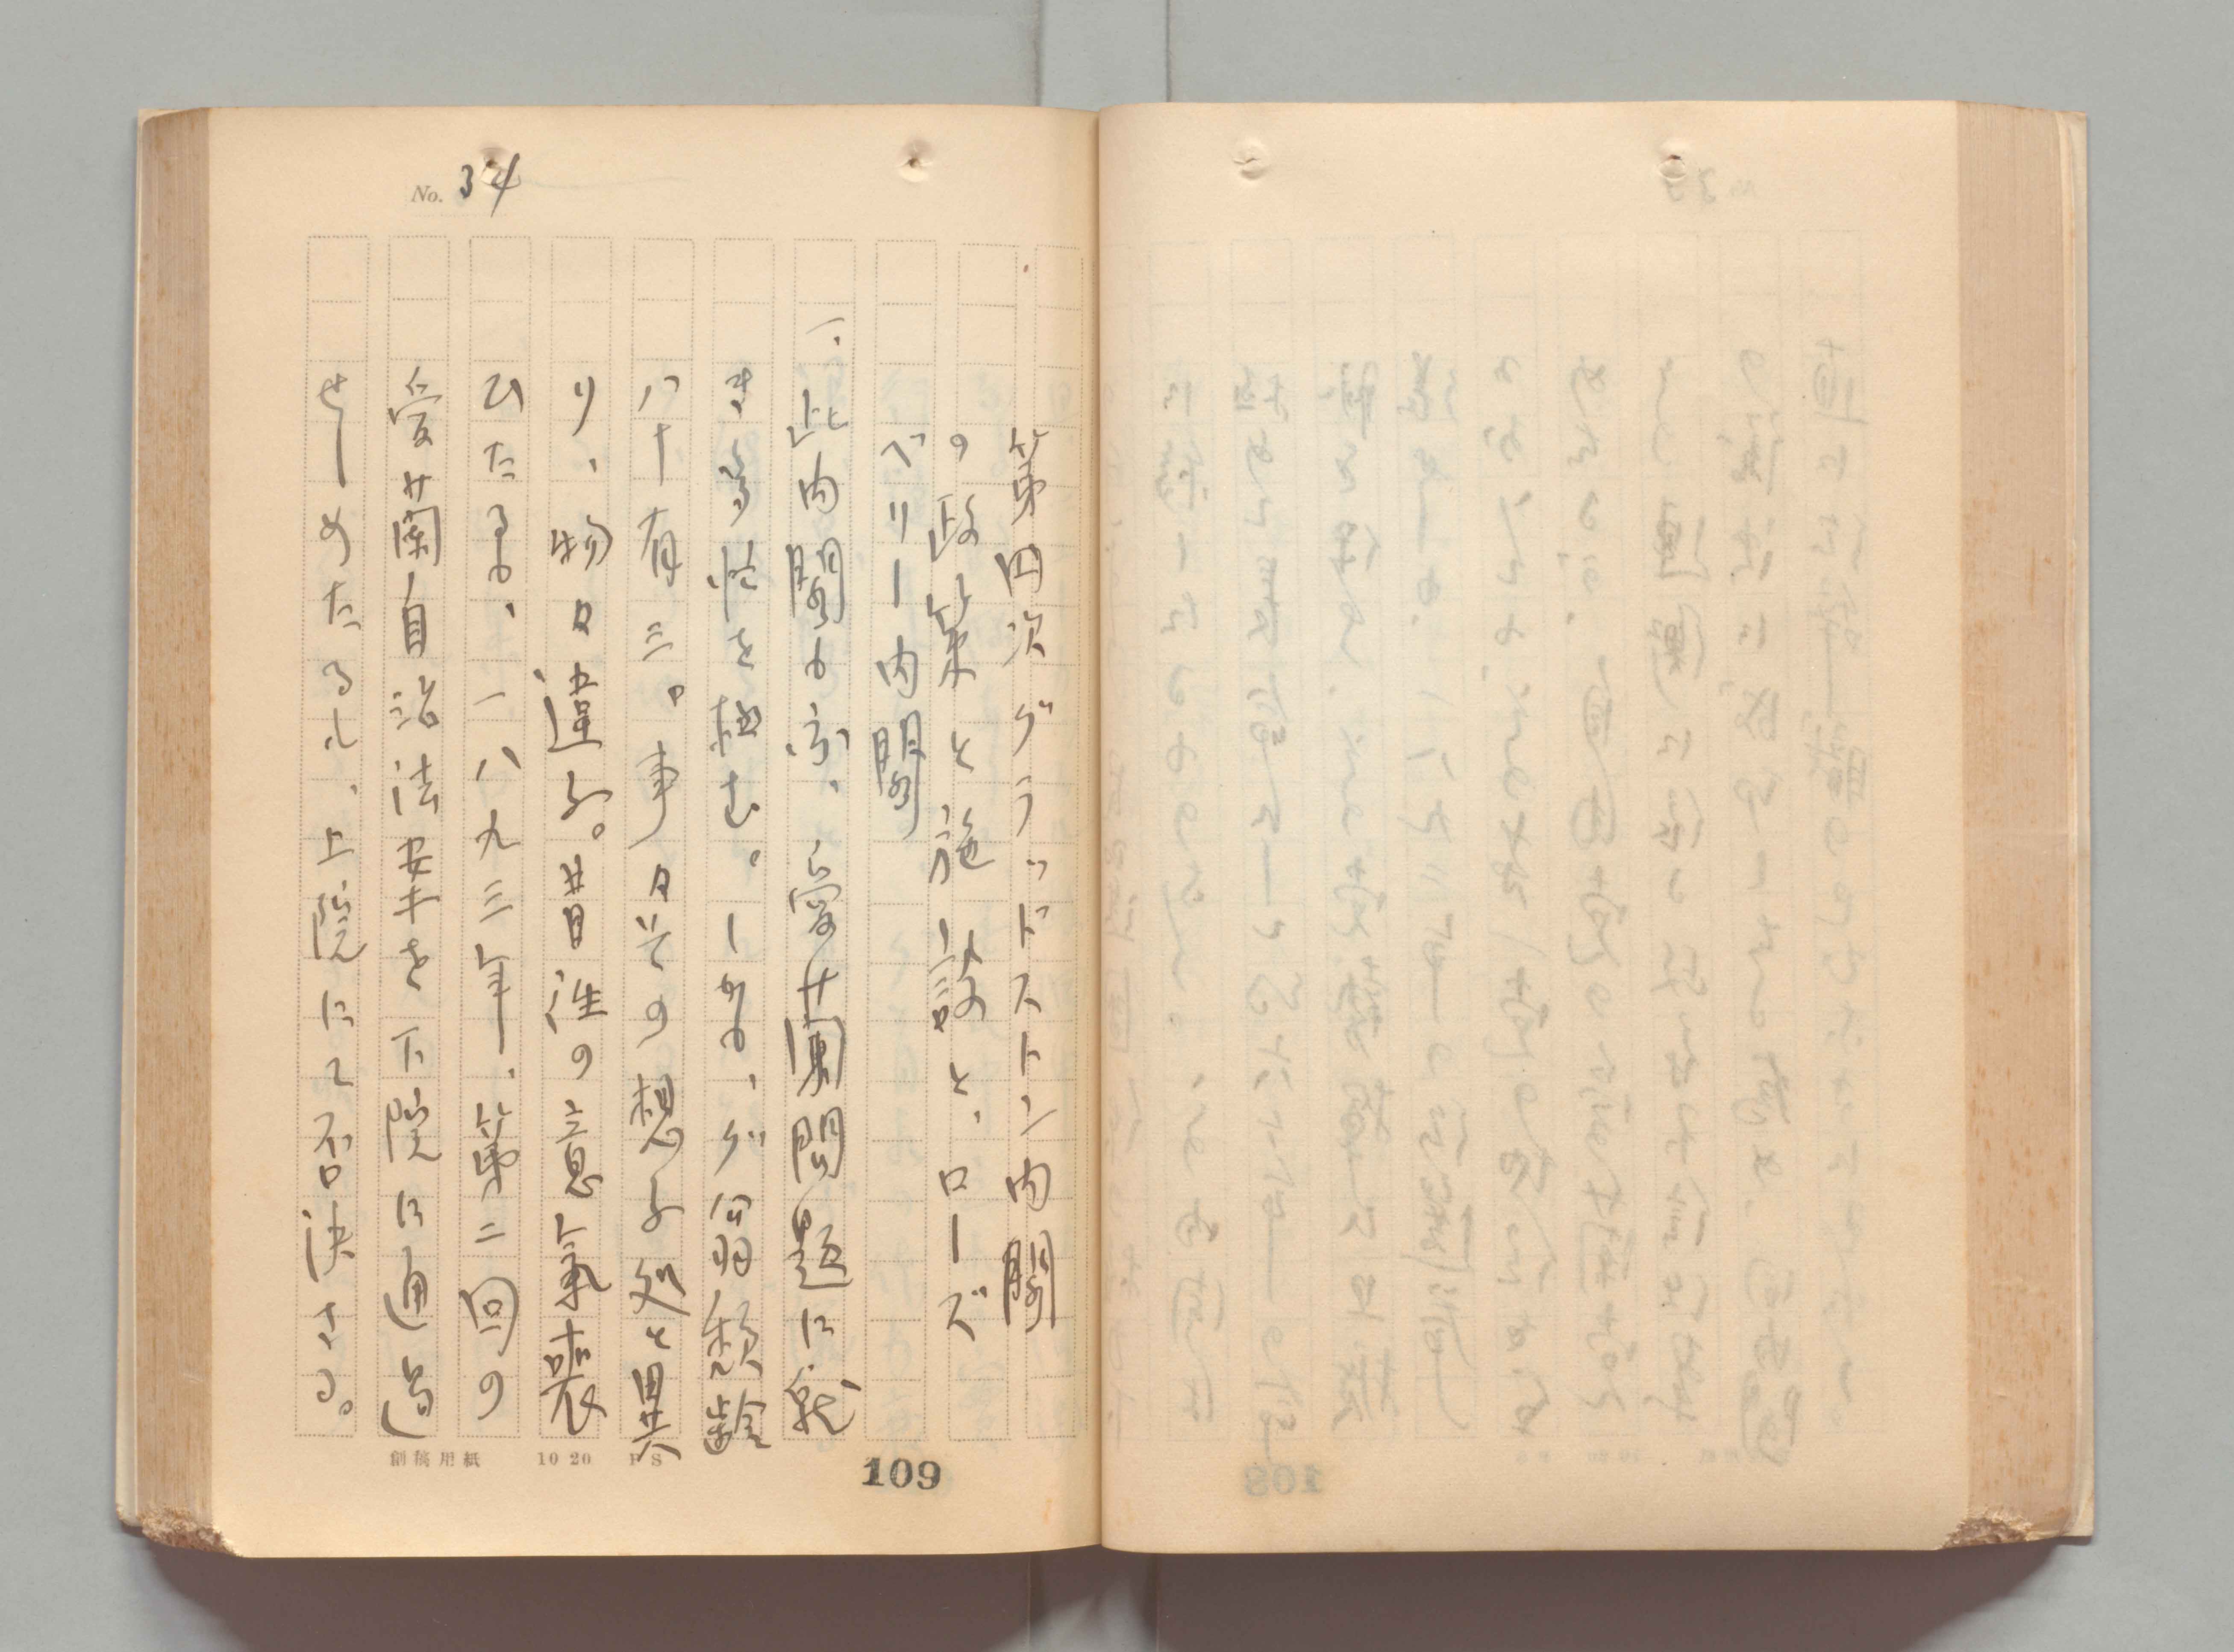 No. 34
第四次グラッドストン内閣
の政策と施設と、ローズ
ベリー内閣
一、此内閣も亦、愛蘭問題に就
きる悩を極む。しかも、グ翁頽齢
八十有三。事々其の想ふ処と異
り、物々違ふ。昔往の意氣喪
ひたるも、一八九三年、第二回の
愛蘭自治法案を下院に通過
せしめたるに、上院にて否決さる。
創稿用紙 10 20 P S
109